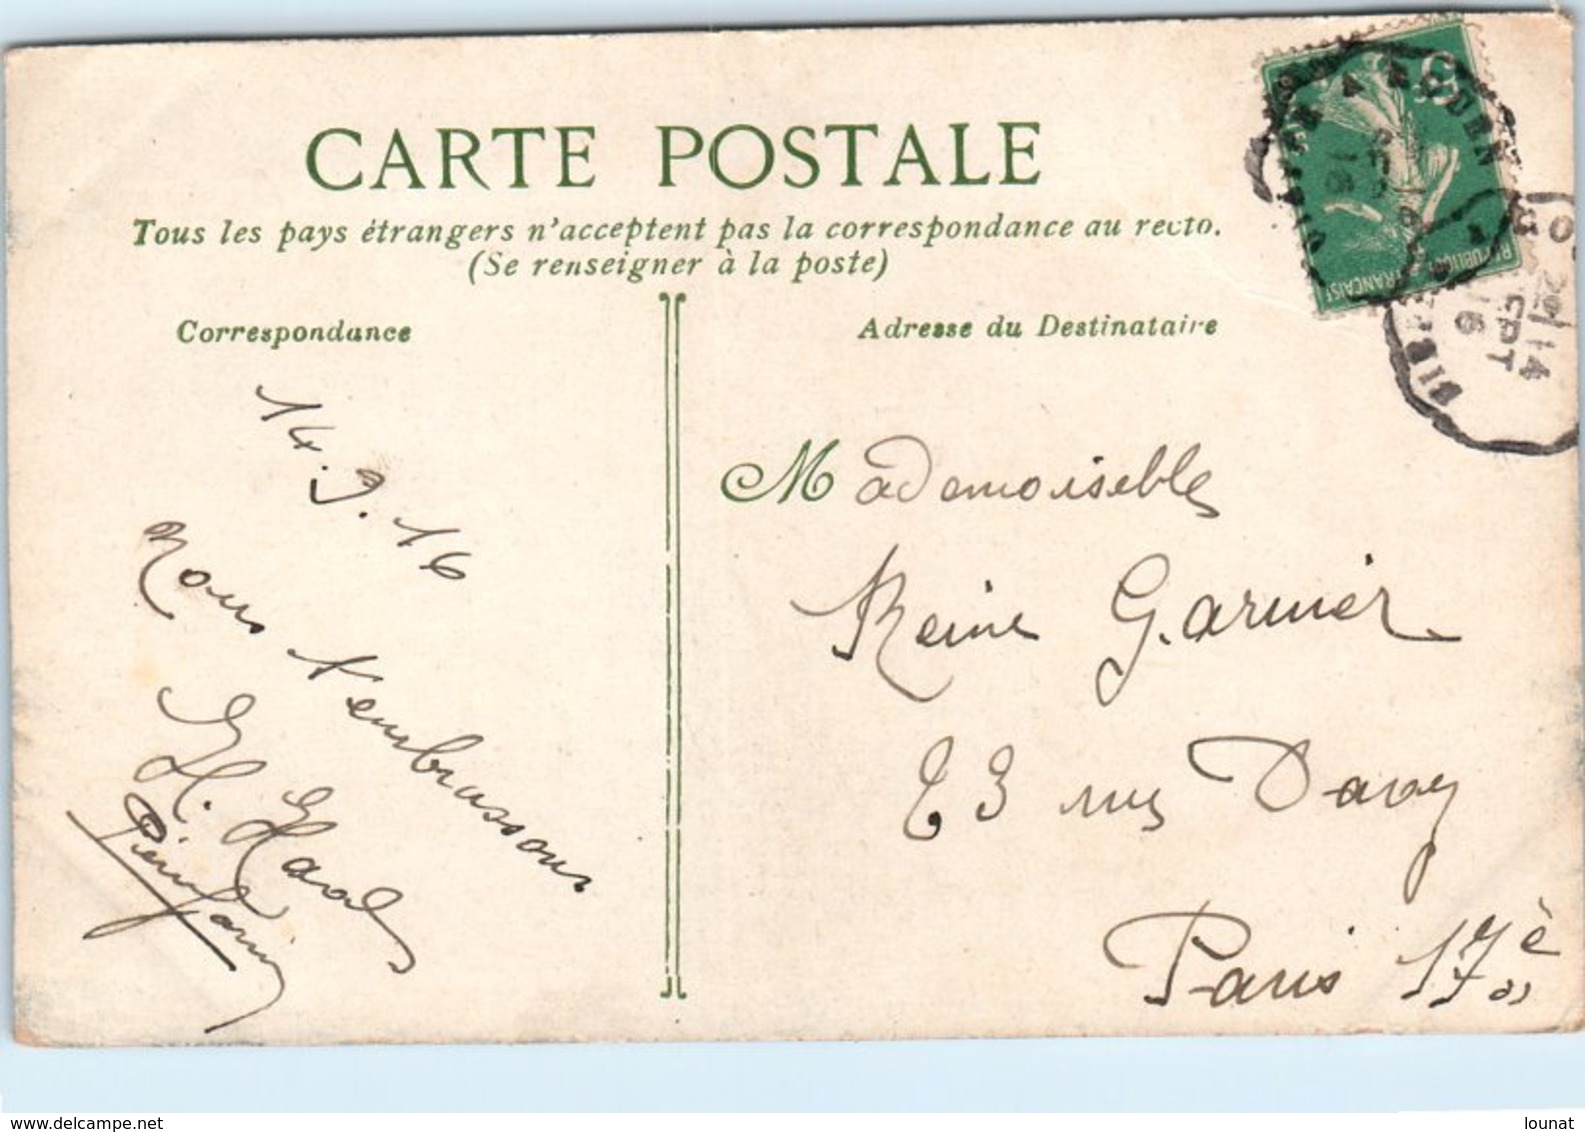 CARTE POSTALE
Tous les pays étrangers n'acceptent pas la correspondance au recto.
(Se renseigner à la poste)
Correspondance
Adresse du Destinataire
14.9.16
Nous t'embrassons
Mademoiselle
Reine Garnier
23 rue Davy
Paris 17è
DIEPPE A ROUEN
5
REPUBLIQUE FRANÇAISE
14
SEPT
16
delcampe.net
lounat